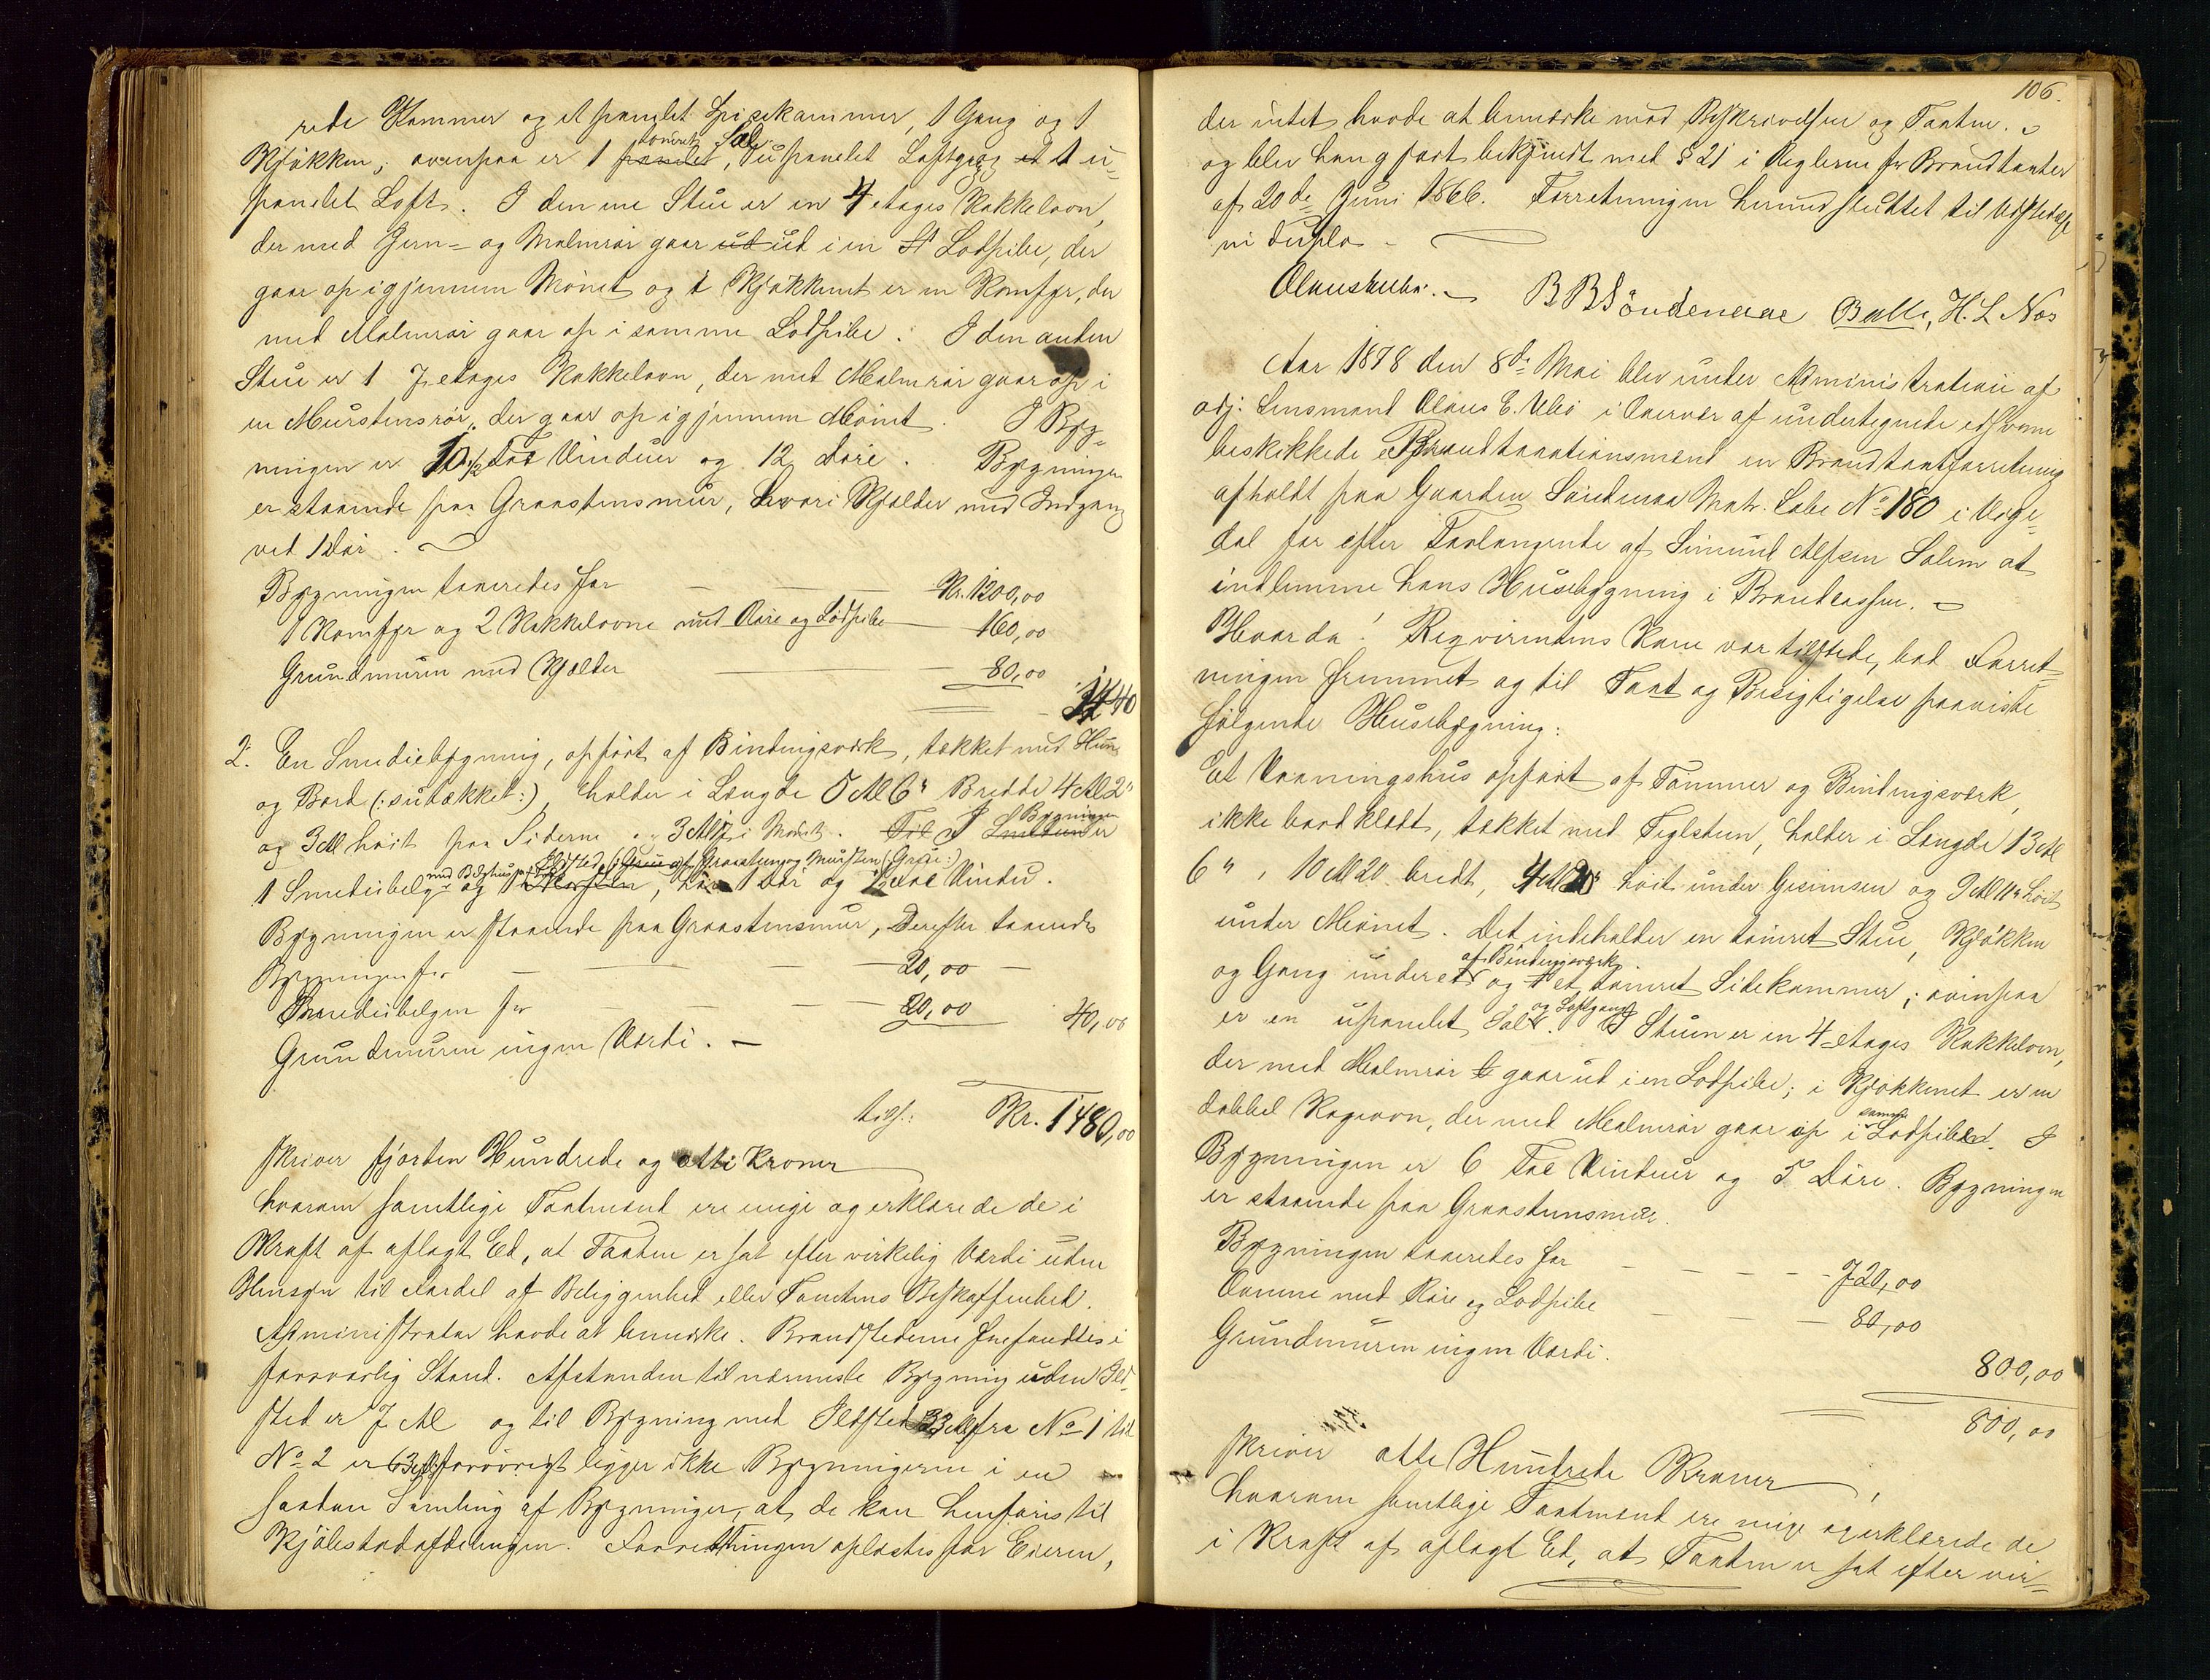 rede Kammer og et panelet Spisekammer, 1 Gang og 1
Kjøkken; ovenpaa er 1 panelet tømret Sal, 1 upanelet Loftgang og et 1 u-
panelet Loft. I den ene Stue er en 4 etages Kakkelovn,
der med Jern- og Malmrør gaar ud ud i en Lodpibe, der
gaar op igjennem Mønet og i Kjøkkenet er en Komfyr, der
med Malmrør gaar op i samme Lodpibe. I den anden
Stue er 1 7 etages Kakkelovn, der med Malmrør gaar op i
en Murstensrør, der gaar op igjennem Mønet. I Byg-
ningen er 10 1/2 Fac Vinduer og 12 Døre. Bygningen
er staaende paa Graastensmur, hvori Kjelder med Indgang
ved 1 Dør.
Bygningen taxeredes for Kr. 1200,00
1 Komfyr og 2 Kakkelovne med Røre og Lodpibe 160,00
Grundmuren med Kjælder 80,00
1440
2. En Smediebygning, opført af Bindingsværk, tækket med Hun
og Bord (: sutækket :), holder i Længde 5 Al 6" Bredde 4 Al 2"
og 3 Al høit paa Siderne og 3 Al i Mønet. I Bygningen er
1 Smediebelg og 1 Ildsted af Graasten og Mursten (: Grue :), har 1 Dør og Fac Vindu.
Bygningen er staaende paa Graastensmur, Derefter taxeredes
Bygningen for 20,00
Smediebelgen for 20,00 40,00
Grundmuren ingen Værdi.
tils: Kr. 1480,00
skriver fjorten Hundrede og otti Kroner
hvorom samtlige Taxtmænd ere enige og erklærede de i
Kraft af aflagt Ed, at Taxten er sat efter virkelig Værdi uden
Hensyn til Fordel af Beliggenhed eller Tomtens Beskaffenhed.
Administrator havde at bemærke. Brandstederne forefandtes i
forsvarlig Stand. Afstanden til nærmeste Bygning uden Ild-
sted er 7 Al og til Bygning med Ildsted 33 Al, fra No 1 til
No 2 er 63 Al, forøvrigt ligger ikke Bygningerne i en
saadan Samling af Bygninger, at de kan henføres til
Kjøbstadafdelingen. Forretningen oplæstes for Eieren,
106.
der intet havde at bemærke mod Beskrivelsen og Taxten.
og blev han gjort bekjendt med § 21 i Reglerne for Brandtaxter
af 20de Juni 1866. Forretningen hermed sluttet til Udstedelse
in duplo.
Olaus Ulbø. B B Söndenaae Balle, H. L Nos
Aar 1878 den 8de Mai blev under Administration af
adj. Lensmand Olaus E. Ulbø i Overvær af undertegnede edsvorne
beskikkede Brandtaxationsmænd en Brandtaxtforretning
afholdt paa Gaarden Søndenaa Matr. Løbe No 180 i Urge-
dal for efter Forlangende af Simund Alfsen Solem at
indlemme hans Husebygning i Brandcassen.
Hvorda! Reqvirentens Kone var tilstede, lod Forret-
ningen fremmet og til Taxt og Besigtigelse paaviste
følgende Husebygning:
Et Vaaningshus opført af Tømmer og Bindingsværk,
ikke bordklædt, tækket med Teglsten, holder i Længde 13 Al
6", 10 Al 20 bredt, 4 Al 20" høit under Gesimsen og 9 Al 11" høit
under Mønet. Det indeholder en tømret Stue, Kjøkken
og Gang under et af Bindingsværk og et tømret Sidekammer; ovenpaa
er en upanelet Sal og Loftgang. I Stuen er en 4-etages Kakkelovn,
der med Malmrør gaar ud i en Lodpibe; i Kjøkkenet er en
dobbel Kogeovn, der med Malmrør gaar op i samme Lodpibe. I
Bygningen er 6 Fac Vinduer og 5 Døre. Bygningen
er staaende paa Graastensmur.
Bygningen taxeredes for 720,00
Ovnene med Røre og Lodpibe 80,00
Grundmuren ingen Værdi.
800,00
800,00
skriver otte Hundrede Kroner
hvorom samtlige Taxtmænd ere enige og erklærede de
i Kraft af aflagt Ed, at Taxten er sat efter vir-